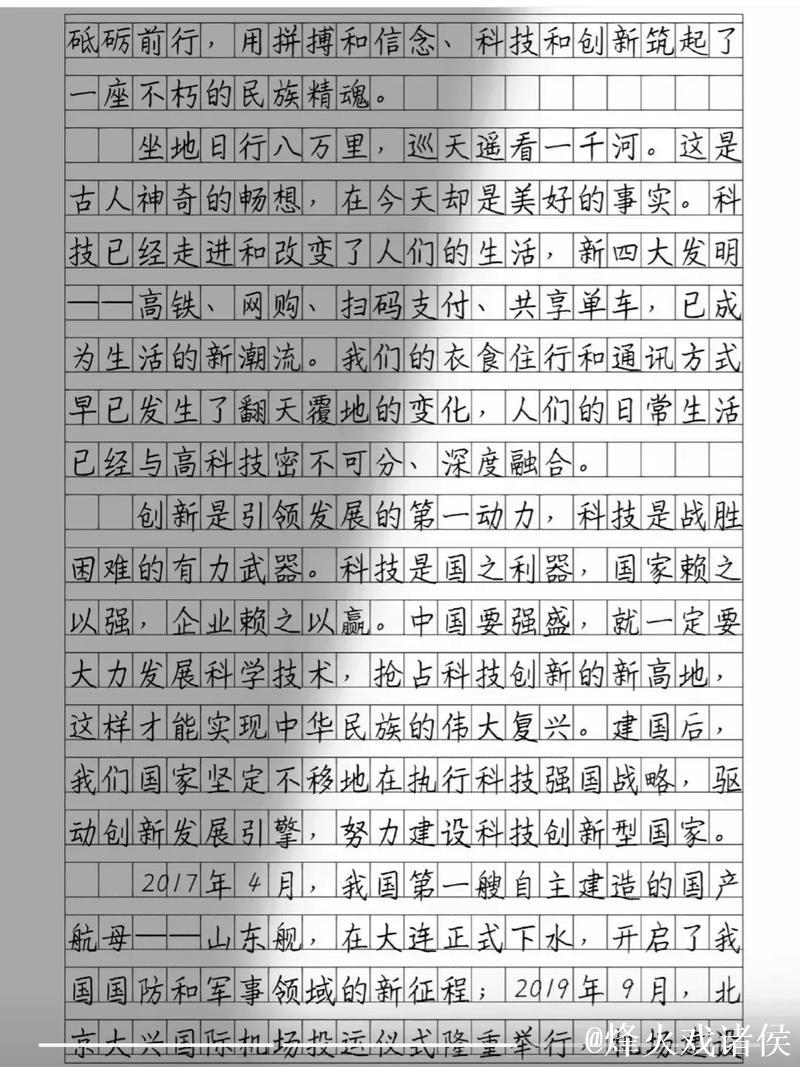 砥砺前行，用拼搏和信念、科技和创新筑起了
一座不朽的民族精魂。
坐地日行八万里，巡天遥看一千河。这是
古人神奇的畅想，在今天却是美好的事实。科
技已经走进和改变了人们的生活，新四大发明
——高铁、网购、扫码支付、共享单车，已成
为生活的新潮流。我们的衣食住行和通讯方式
早已发生了翻天覆地的变化，人们的日常生活
已经与高科技密不可分、深度融合。
创新是引领发展的第一动力，科技是战胜
困难的有力武器。科技是国之利器，国家赖之
以强，企业赖之以赢。中国要强盛，就一定要
大力发展科学技术，抢占科技创新的新高地，
这样才能实现中华民族的伟大复兴。建国后，
我们国家坚定不移地在执行科技强国战略，驱
动创新发展引擎，努力建设科技创新型国家。
2017年4月，我国第一艘自主建造的国产
航母——山东舰，在大连正式下水，开启了我
国国防和军事领域的新征程；2019年9月，北
京大兴国际机场投运仪式隆重举行，机场建设
@烽火戏诸侯